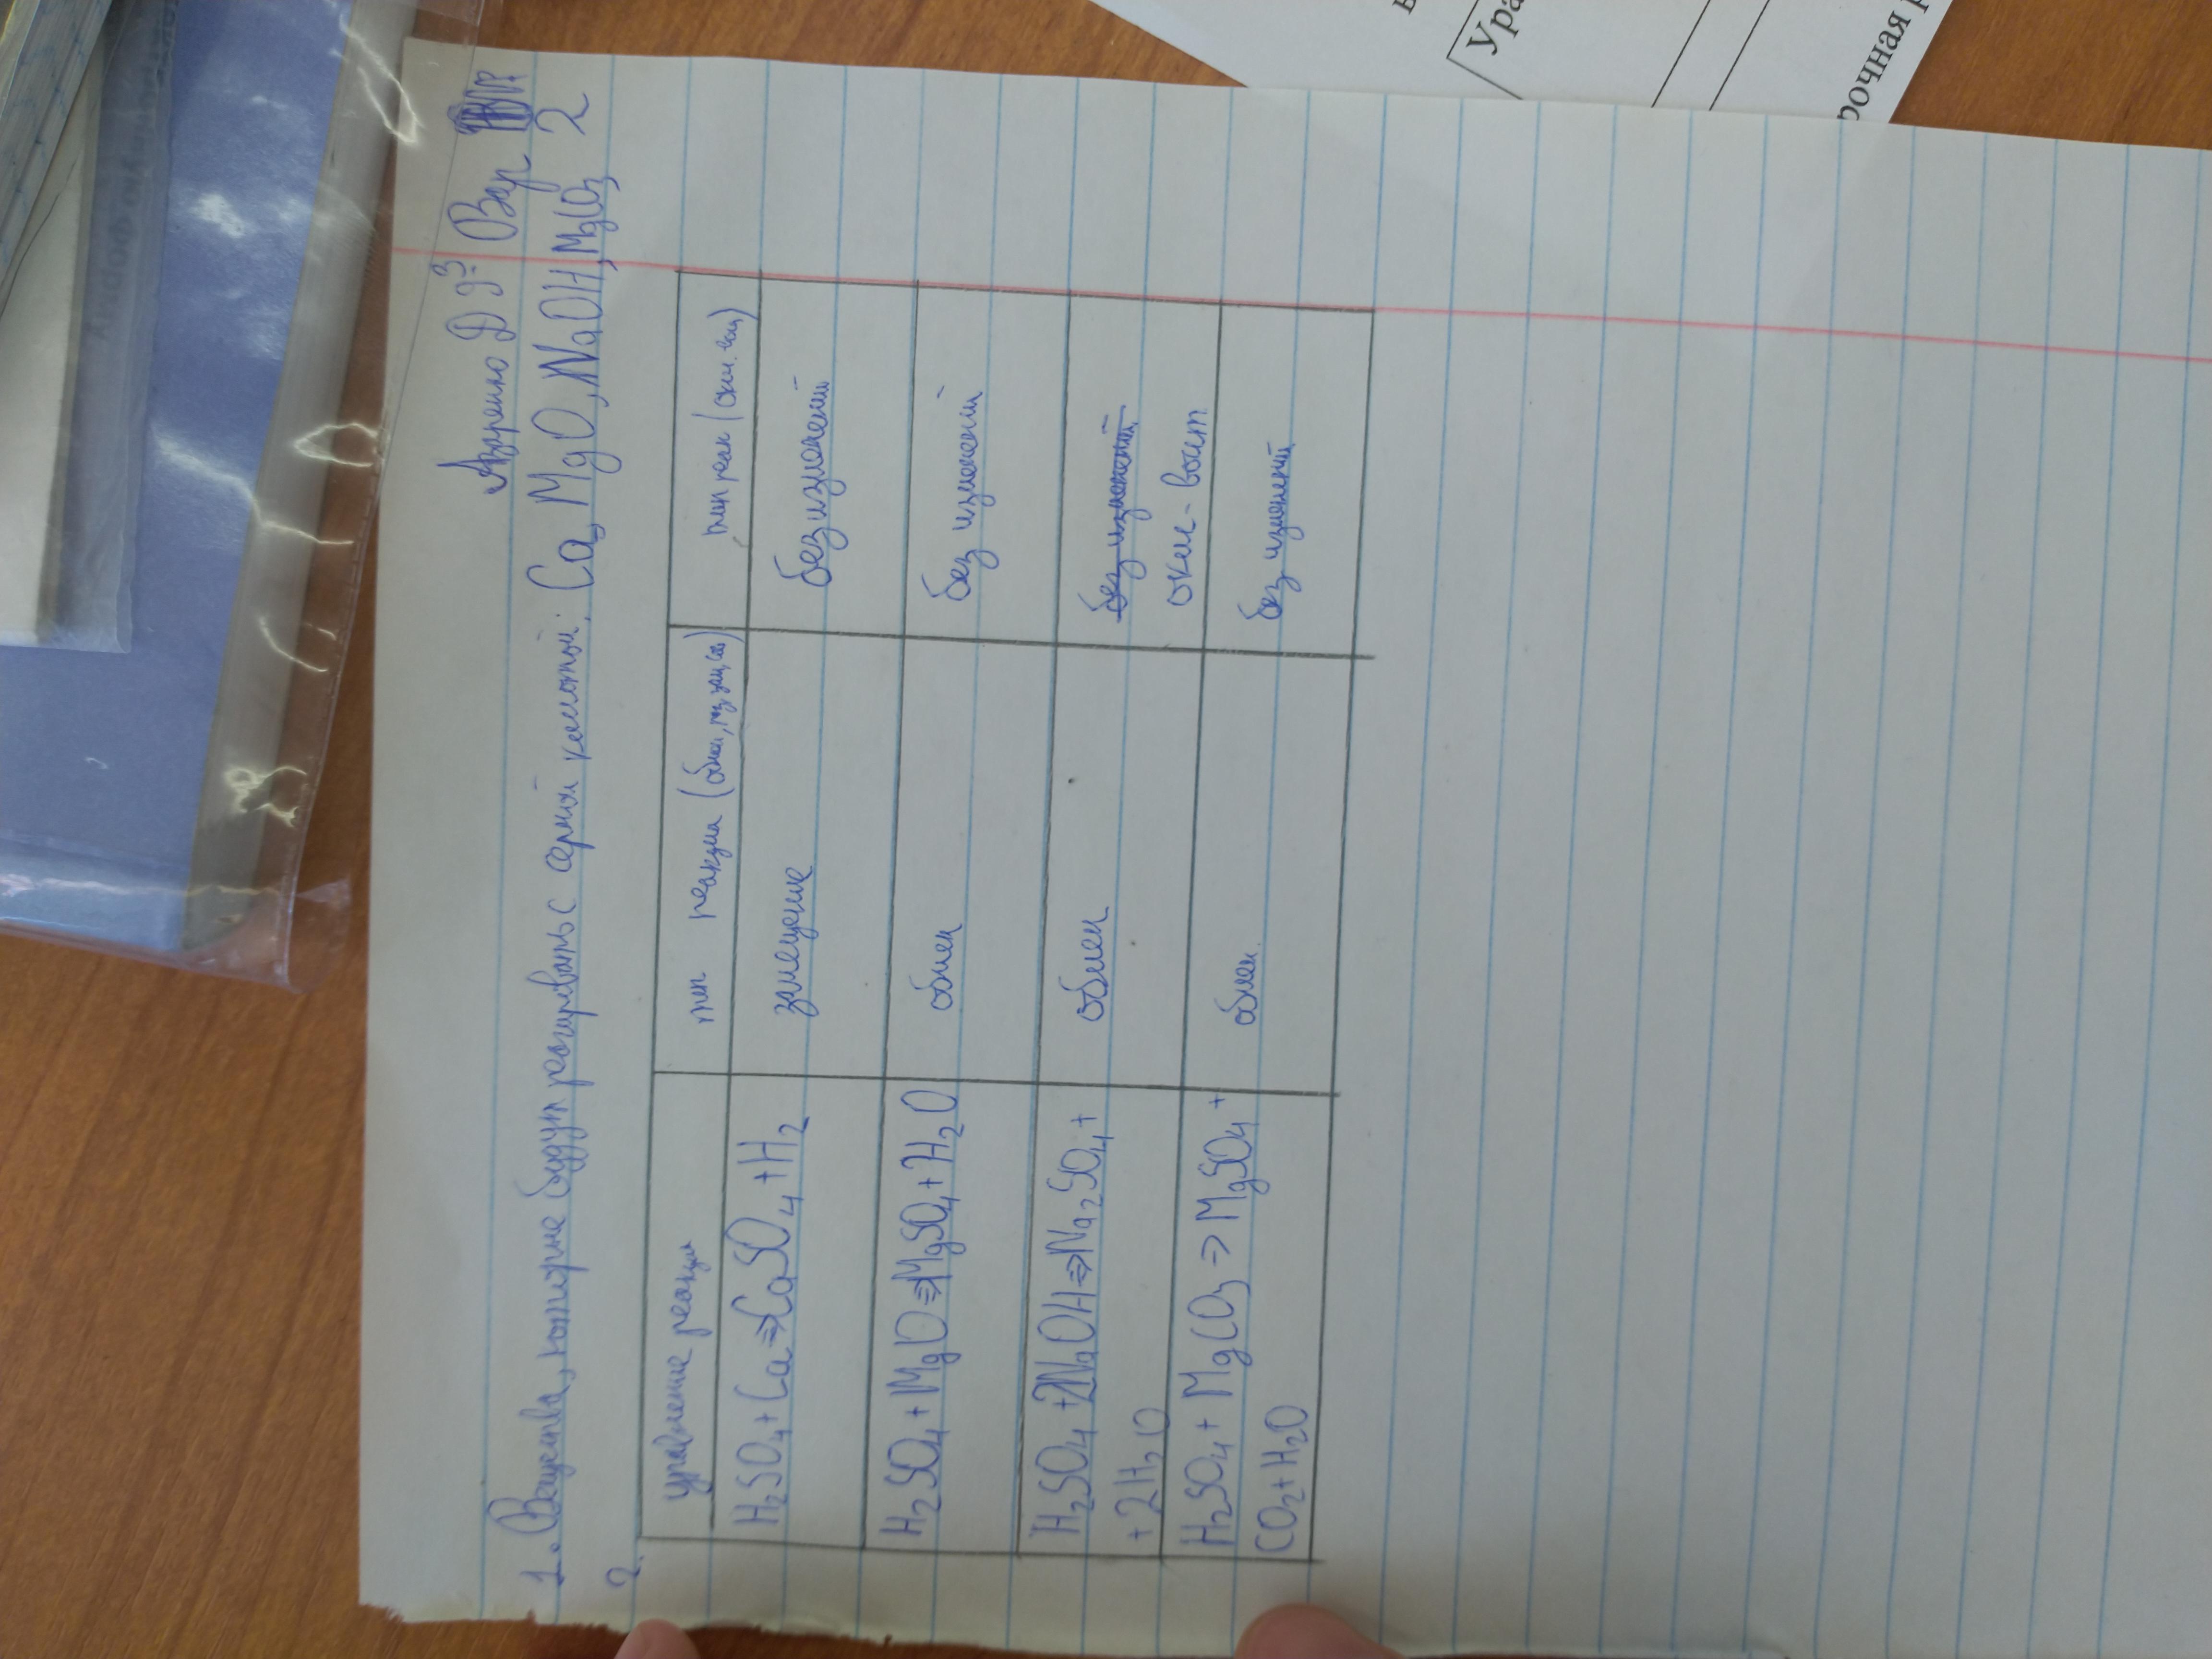 Азаренко Д 9-3 Вар
2
1. Вещества, которые будут реагировать с серной кислотой: Ca, MgO, NaOH, MgCO3
2.
уравнение реакции
тип реакции (обмен, раз, зам, сое)
тип реак (окис. вос)
H2SO4 + Ca => CaSO4 + H2
замещение
без изменений
H2SO4 + MgO => MgSO4 + H2O
обмен
без изменений
H2SO4 + 2NaOH => Na2SO4 +
+ 2H2O
обмен
без изменений
окис - восст
H2SO4 + MgCO3 => MgSO4 +
CO2 + H2O
обмен
без изменений
Ура
рочная